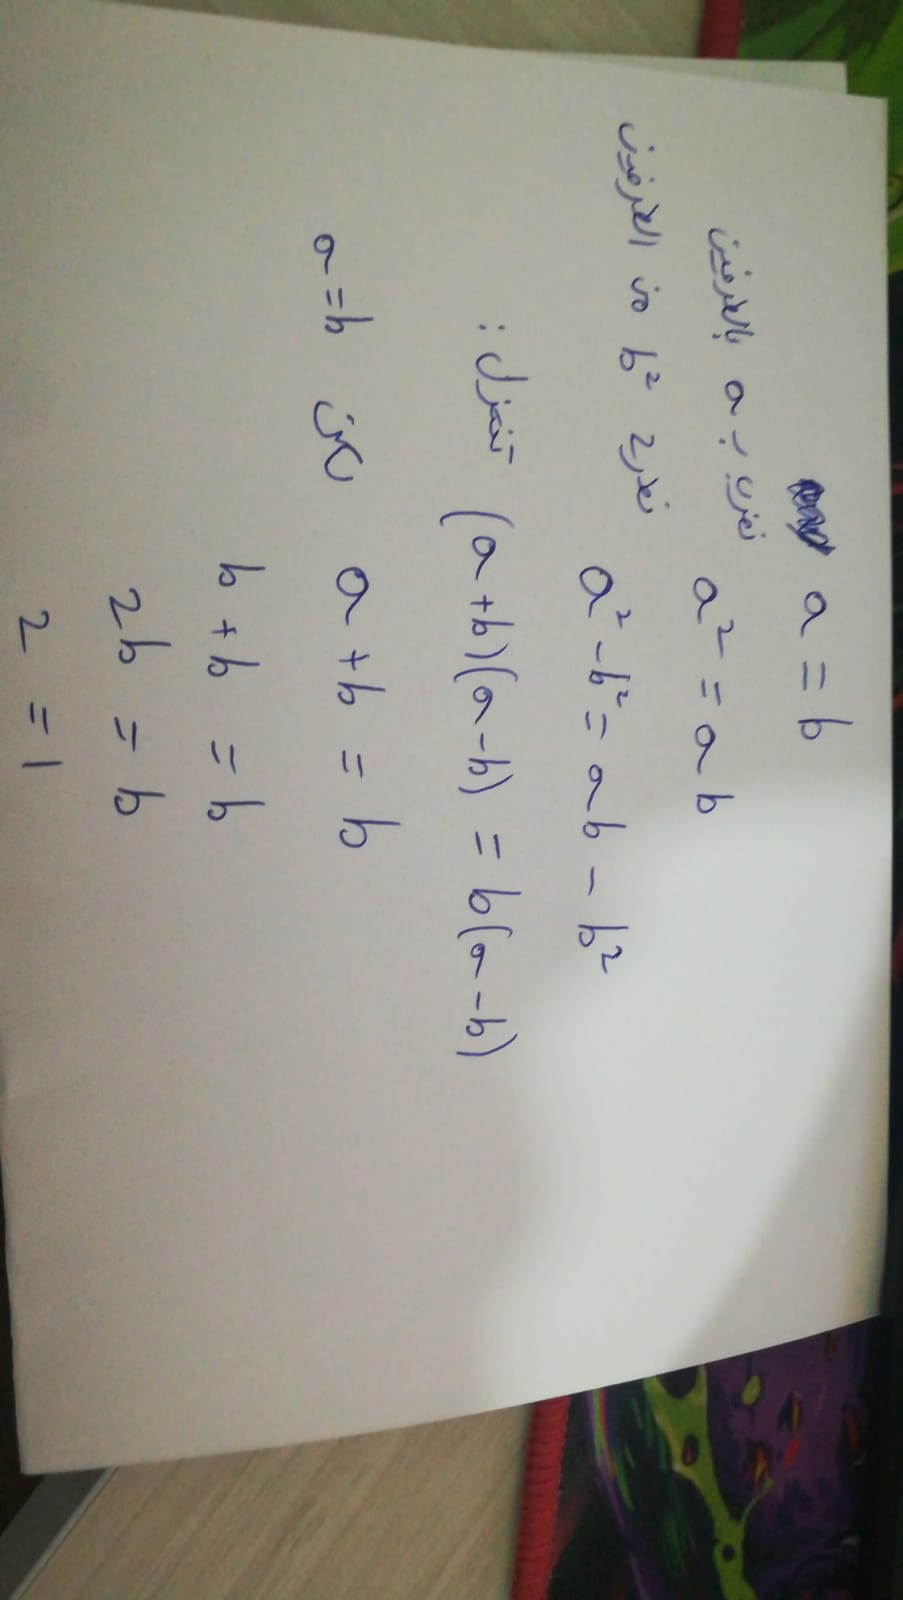 a = b
نضرب ب a بالطرفين a² = ab
نطرح b² من الطرفين a² - b² = ab - b²
(a+b)(a-b) = b(a-b) تختزل :
a + b = b لكن a = b
b + b = b
2b = b
2 = 1